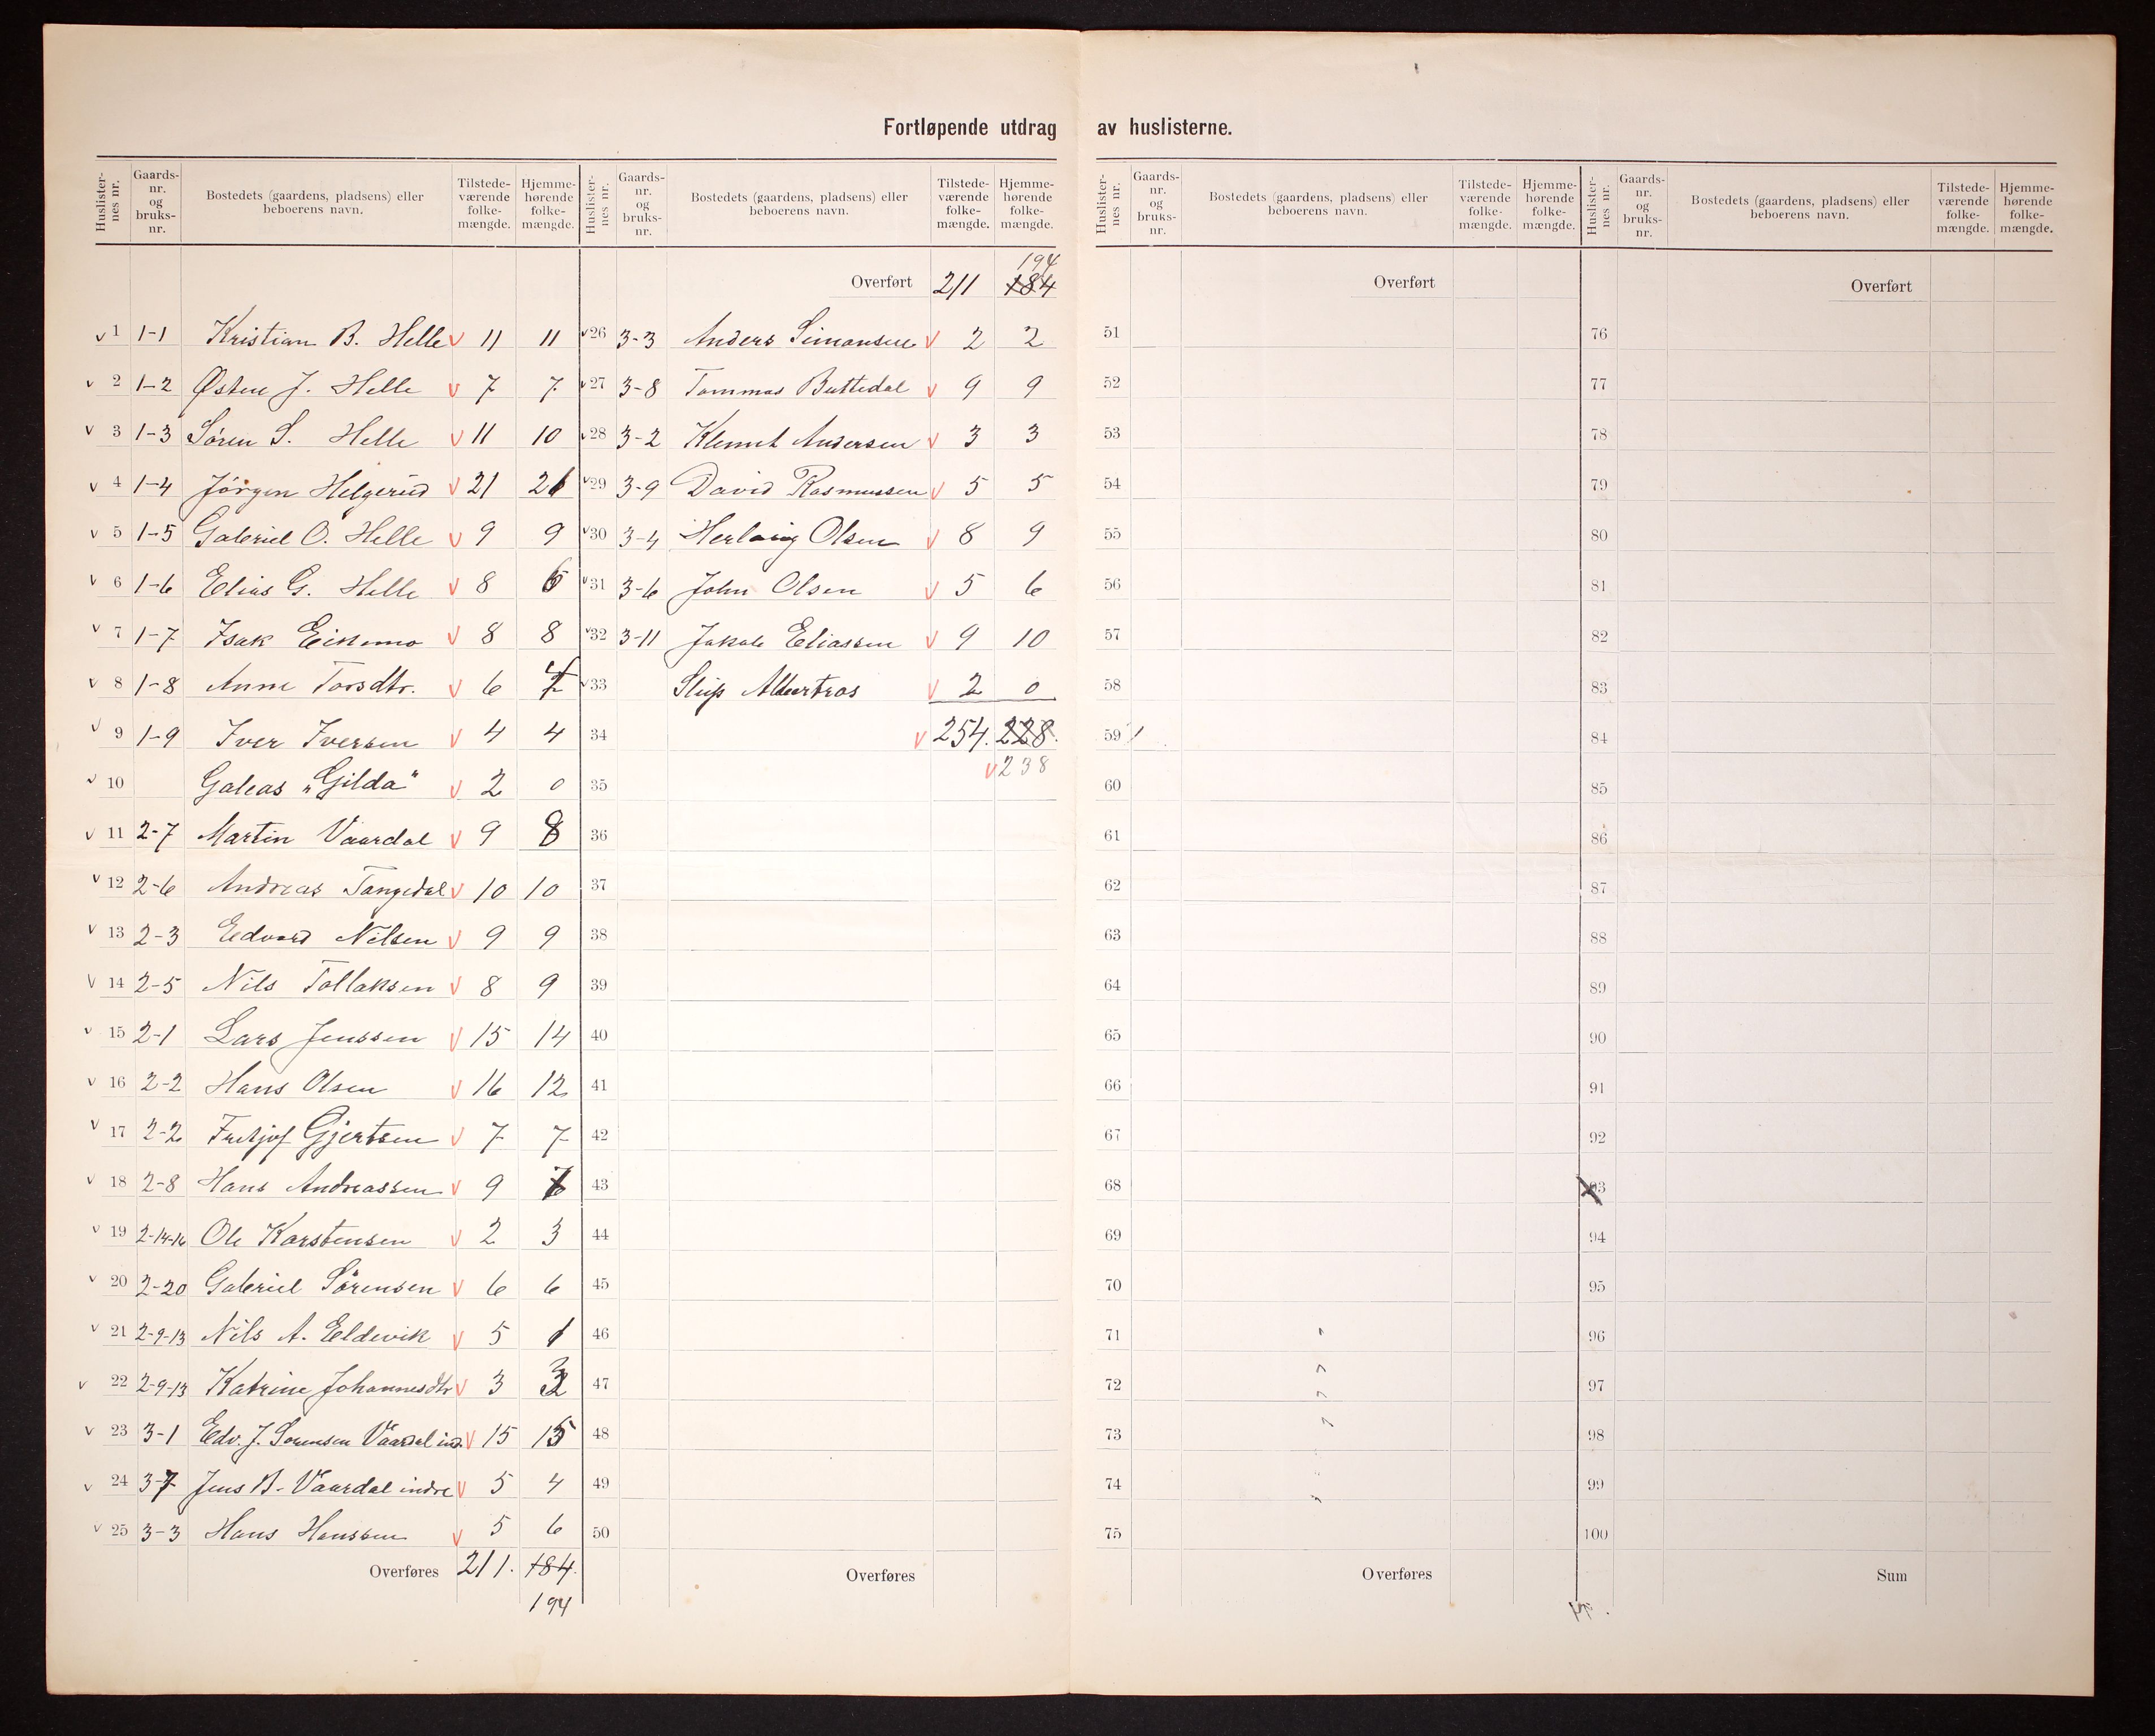 Fortløpende utdrag av huslisterne.
Huslisternes nr. | Gaards-nr. og bruks-nr. | Bostedets (gaardens, pladsens) eller beboerens navn. | Tilstede-værende folke-mængde. | Hjemme-hørende folke-mængde.
1 1-1 Kristian B. Helle 11 11
2 1-2 Østen J. Helle 7 7
3 1-3 Sören S. Helle 11 10
4 1-4 Jörgen Helgerud 21 21
5 1-5 Gabriel O. Helle 9 9
6 1-6 Elias G. Helle 8 6
7 1-7 Isak Eikemo 8 8
8 1-8 Anne Torsdtr. 6
9 1-9 Iver Iversen 4 4
10 Galeas "Gilda" 2 0
11 2-7 Martin Vaardal 9 8
12 2-6 Andreas Tangedal 10 10
13 2-3 Edvard Nilsen 9 9
14 2-5 Nils Tollaksen 8 9
15 2-1 Lars Jenssen 15 14
16 2-2 Hans Olsen 16 12
17 2-2 Fritjof Gjertsen 7 7
18 2-8 Hans Andreassen 9
19 2-14-16 Ole Karstensen 2 3
20 2-20 Gabriel Sörensen 6 6
21 2-9-13 Nils A. Eldevik 5 1
22 2-9-13 Katrine Johannesdtr 3 3
23 3-1 Edv. J. Sorensen Vaardal ind. 15 15
24 3-7 Jens B. Vaardal indre 5 4
25 3-3 Hans Hanssen 5 6
Overføres 211. 184.
194
Huslisternes nr. | Gaards-nr. og bruks-nr. | Bostedets (gaardens, pladsens) eller beboerens navn. | Tilstede-værende folke-mængde. | Hjemme-hørende folke-mængde.
194
Overført 211 184
26 3-3 Anders Simonsen 2 2
27 3-8 Tommas Buttedal 9 9
28 3-2 Klemet Andersen 3 3
29 3-9 David Rasmussen 5 5
30 3-4 Herlaug Olsen 8 9
31 3-6 John Olsen 5 6
32 3-11 Jakob Eliassen 9 10
33 Slup Albertros 2 0
34 254. 228.
238
35
36
37
38
39
40
41
42
43
44
45
46
47
48
49
50
Overføres
Huslisternes nr. | Gaards-nr. og bruks-nr. | Bostedets (gaardens, pladsens) eller beboerens navn. | Tilstede-værende folke-mængde. | Hjemme-hørende folke-mængde.
Overført
51
52
53
54
55
56
57
58
59
60
61
62
63
64
65
66
67
68
69
70
71
72
73
74
75
Overføres
Huslisternes nr. | Gaards-nr. og bruks-nr. | Bostedets (gaardens, pladsens) eller beboerens navn. | Tilstede-værende folke-mængde. | Hjemme-hørende folke-mængde.
Overført
76
77
78
79
80
81
82
83
84
85
86
87
88
89
90
91
92
93
94
95
96
97
98
99
100
Sum